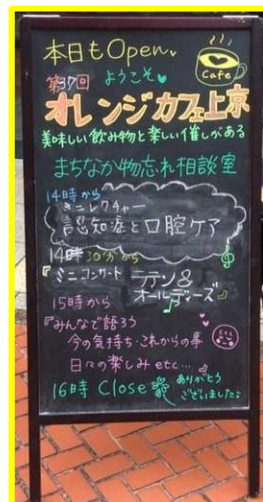 本日もOpen
Cafe
第37回 ようこそ
オレンジカフェ上京
美味しい飲み物と楽しい催しがある
まちなか物忘れ相談室
14時から
ミニレクチャー
認知症と口腔ケア
14時30分から
『ミニコンサート ニテン&
オールディーズ』
15時から
『みんなで語ろう
今の気持ち・これからの事
日々の楽しみ etc…』
16時 Close
ありがとう
ございました